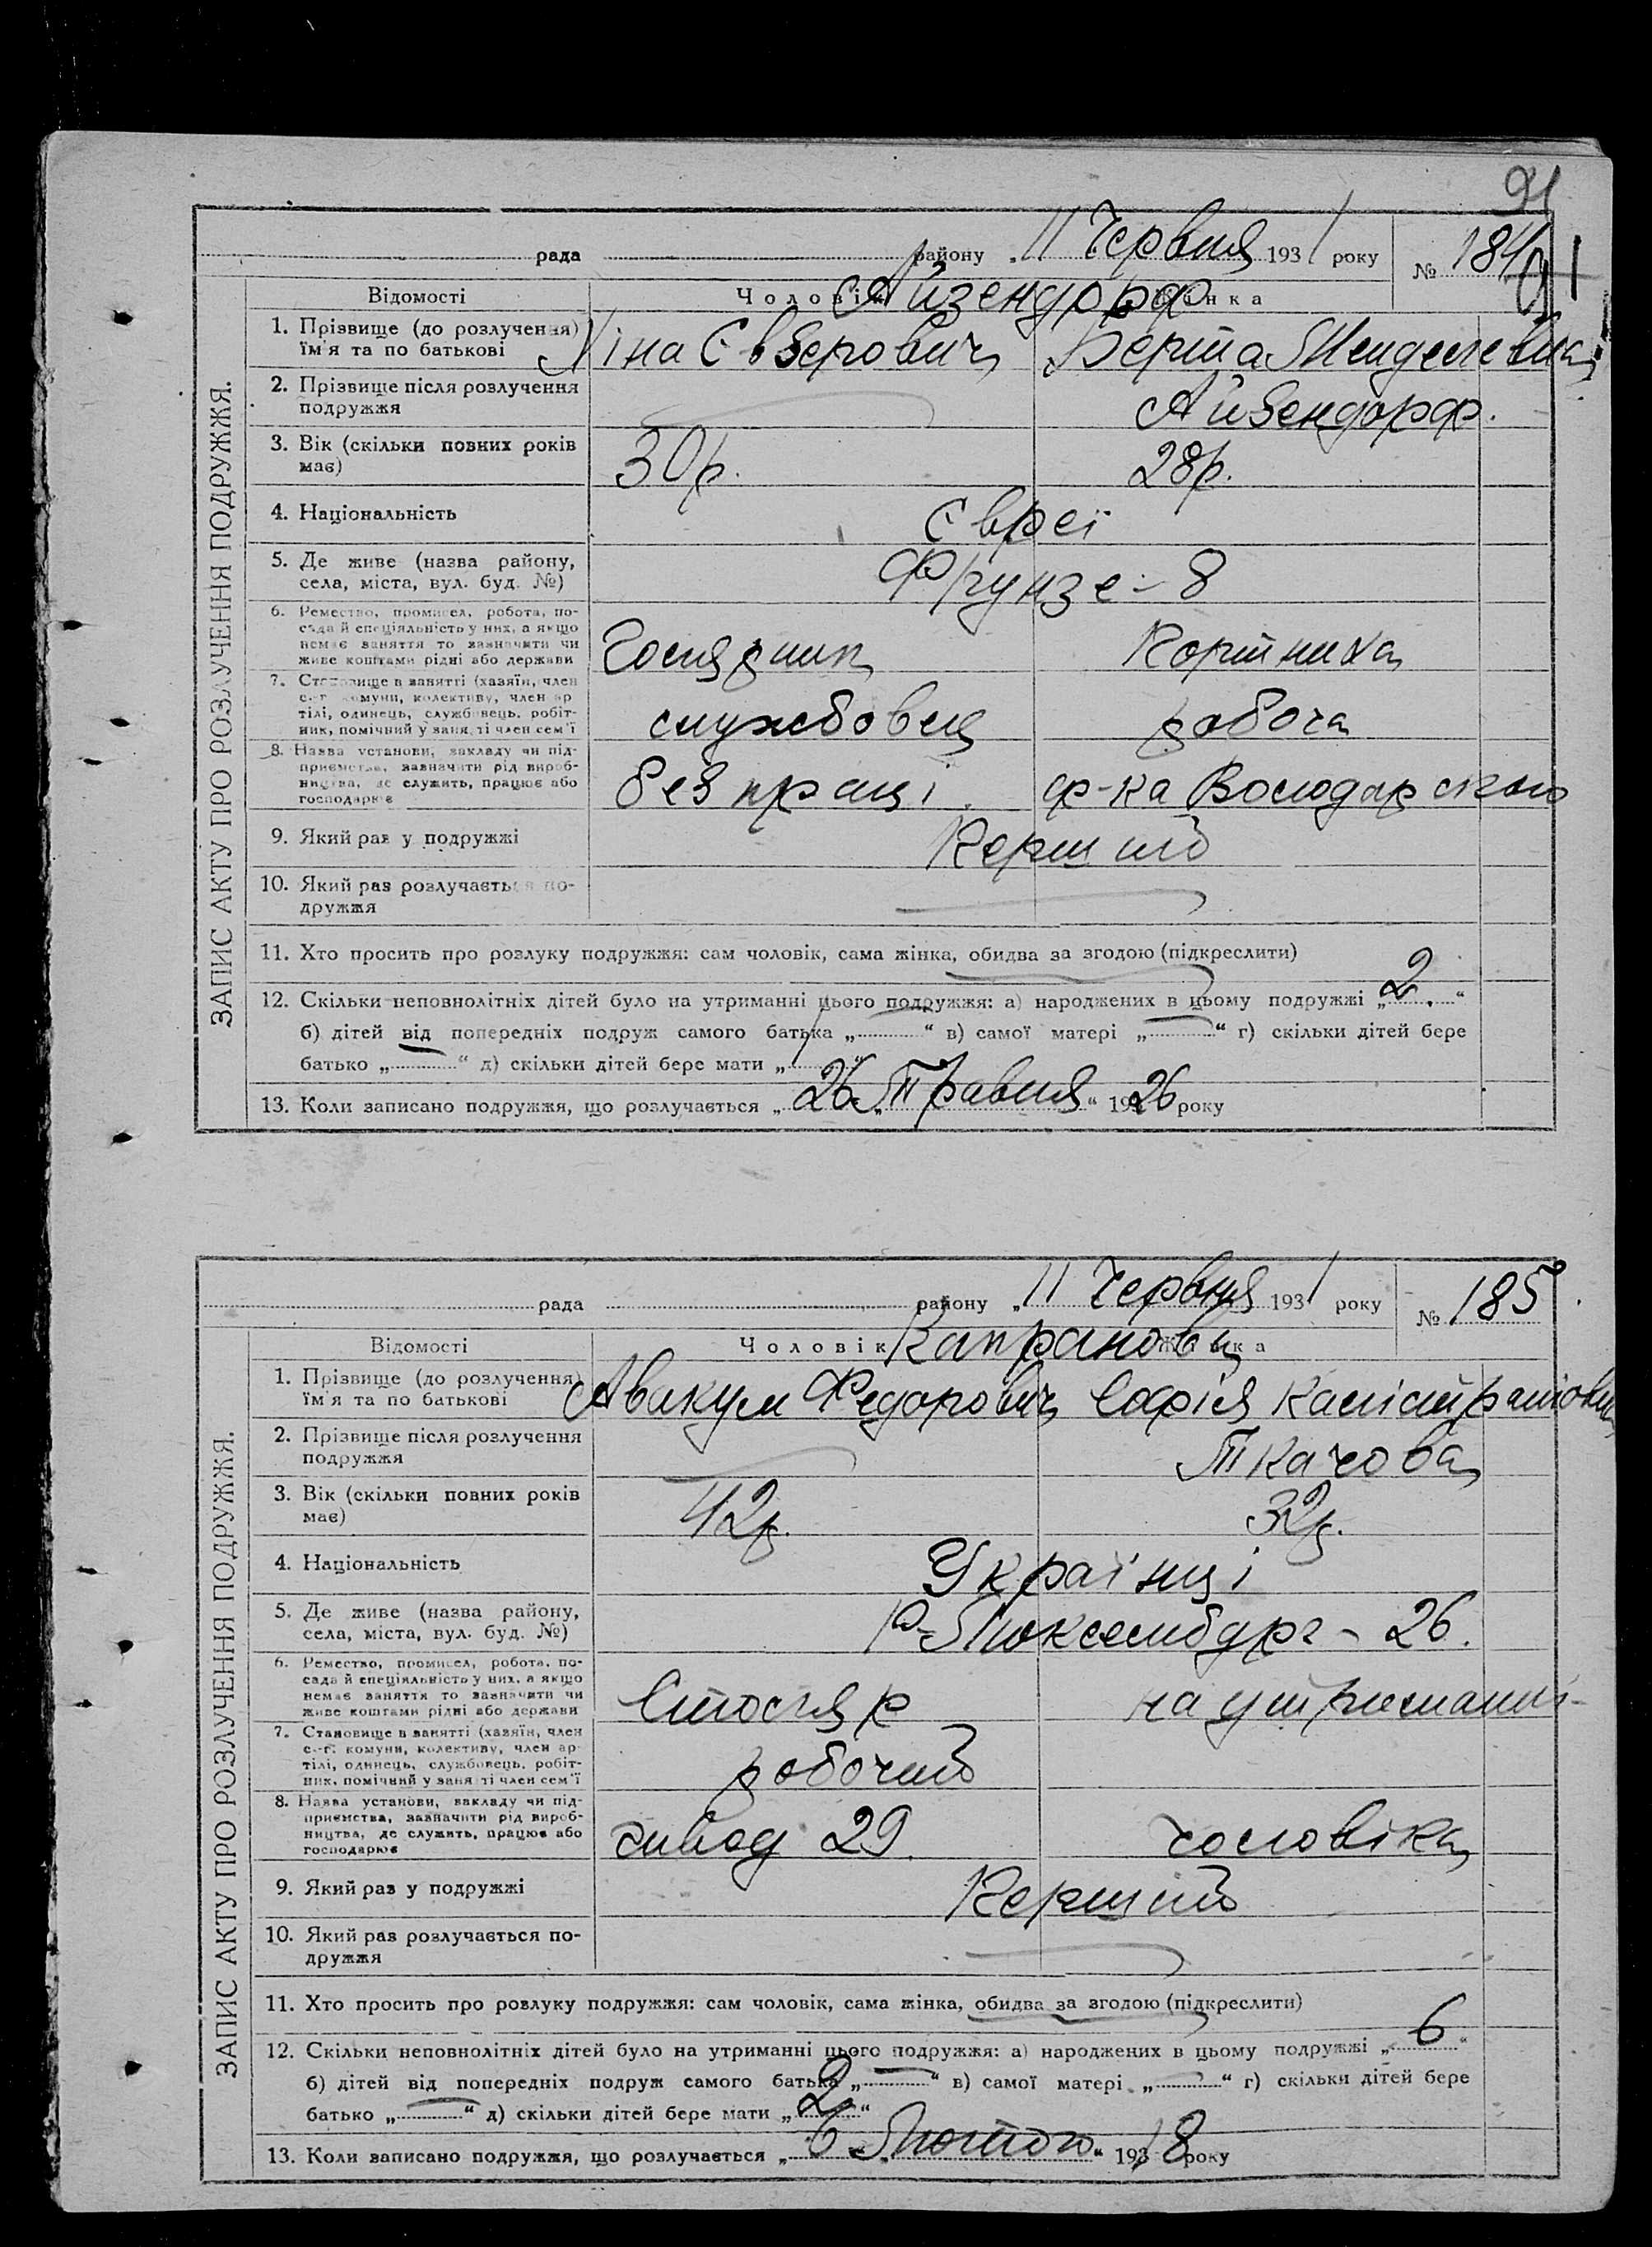 91
рада району „11 Червня 1931 року № 184
Відомості Чоловік Жінка
Айзендорф
1. Прізвище (до розлучення) їм'я та по батькові
Хіна Євзерович Берта Менделевна
2. Прізвище після розлучення подружжя
Айзендорф.
3. Вік (скільки повних років має)
30р. 28р.
4. Національність
Євреї
5. Де живе (назва району, села, міста, вул. буд. №)
Фрунзе - 8
6. Ремество, промисел, робота, посада й спеціяльність у них, а якщо немає заняття то зазначити чи живе коштами рідні або держави
7. Становище в занятті (хазяїн, член с.-г. комуни, колективу, член артілі, одинець, службовець, робітник, помічний у занятті член сем'ї
службовец робоча
8. Назва установи, закладу чи підприємства, зазначити рід виробництва, де служить, працює або господарює
без праці. ф-ка Володарского
9. Який раз у подружжі
Перший
10. Який раз розлучається подружжя
11. Хто просить про розлуку подружжя: сам чоловік, сама жінка, обидва за згодою (підкреслити)
12. Скільки неповнолітніх дітей було на утриманні цього подружжя: а) народжених в цьому подружжі „2.“
б) дітей від попередніх подруж самого батька „ “ в) самої матері „ “ г) скільки дітей бере
батько „ “ д) скільки дітей бере мати „1“
13. Коли записано подружжя, що розлучається „26„Травня“ 1926 року
ЗАПИС АКТУ ПРО РОЗЛУЧЕННЯ ПОДРУЖЖЯ.
рада району „11 Червня 1931 року № 185
Відомості Чоловік Жінка
Капранови
1. Прізвище (до розлучення) їм'я та по батькові
Авакум Федорович Софія Калістратовна
2. Прізвище після розлучення подружжя
Ткачова
3. Вік (скільки повних років має)
42р. 32р.
4. Національність
Українці
5. Де живе (назва району, села, міста, вул. буд. №)
Р-Люксембург - 26.
6. Ремество, промисел, робота, посада й спеціяльність у них, а якщо немає заняття то зазначити чи живе коштами рідні або держави
Столяр на утриманні
7. Становище в занятті (хазяїн, член с.-г. комуни, колективу, член артілі, одинець, службовець, робітник, помічний у занятті член сем'ї
робочий
8. Назва установи, закладу чи підприємства, зазначити рід виробництва, де служить, працює або господарює
завод 29. чоловіка
9. Який раз у подружжі
Перший
10. Який раз розлучається подружжя
11. Хто просить про розлуку подружжя: сам чоловік, сама жінка, обидва за згодою (підкреслити)
12. Скільки неповнолітніх дітей було на утриманні цього подружжя: а) народжених в цьому подружжі „6“
б) дітей від попередніх подруж самого батька „ “ в) самої матері „ “ г) скільки дітей бере
батько „ “ д) скільки дітей бере мати „2“
13. Коли записано подружжя, що розлучається „6„Лютого“ 1918 року
ЗАПИС АКТУ ПРО РОЗЛУЧЕННЯ ПОДРУЖЖЯ.